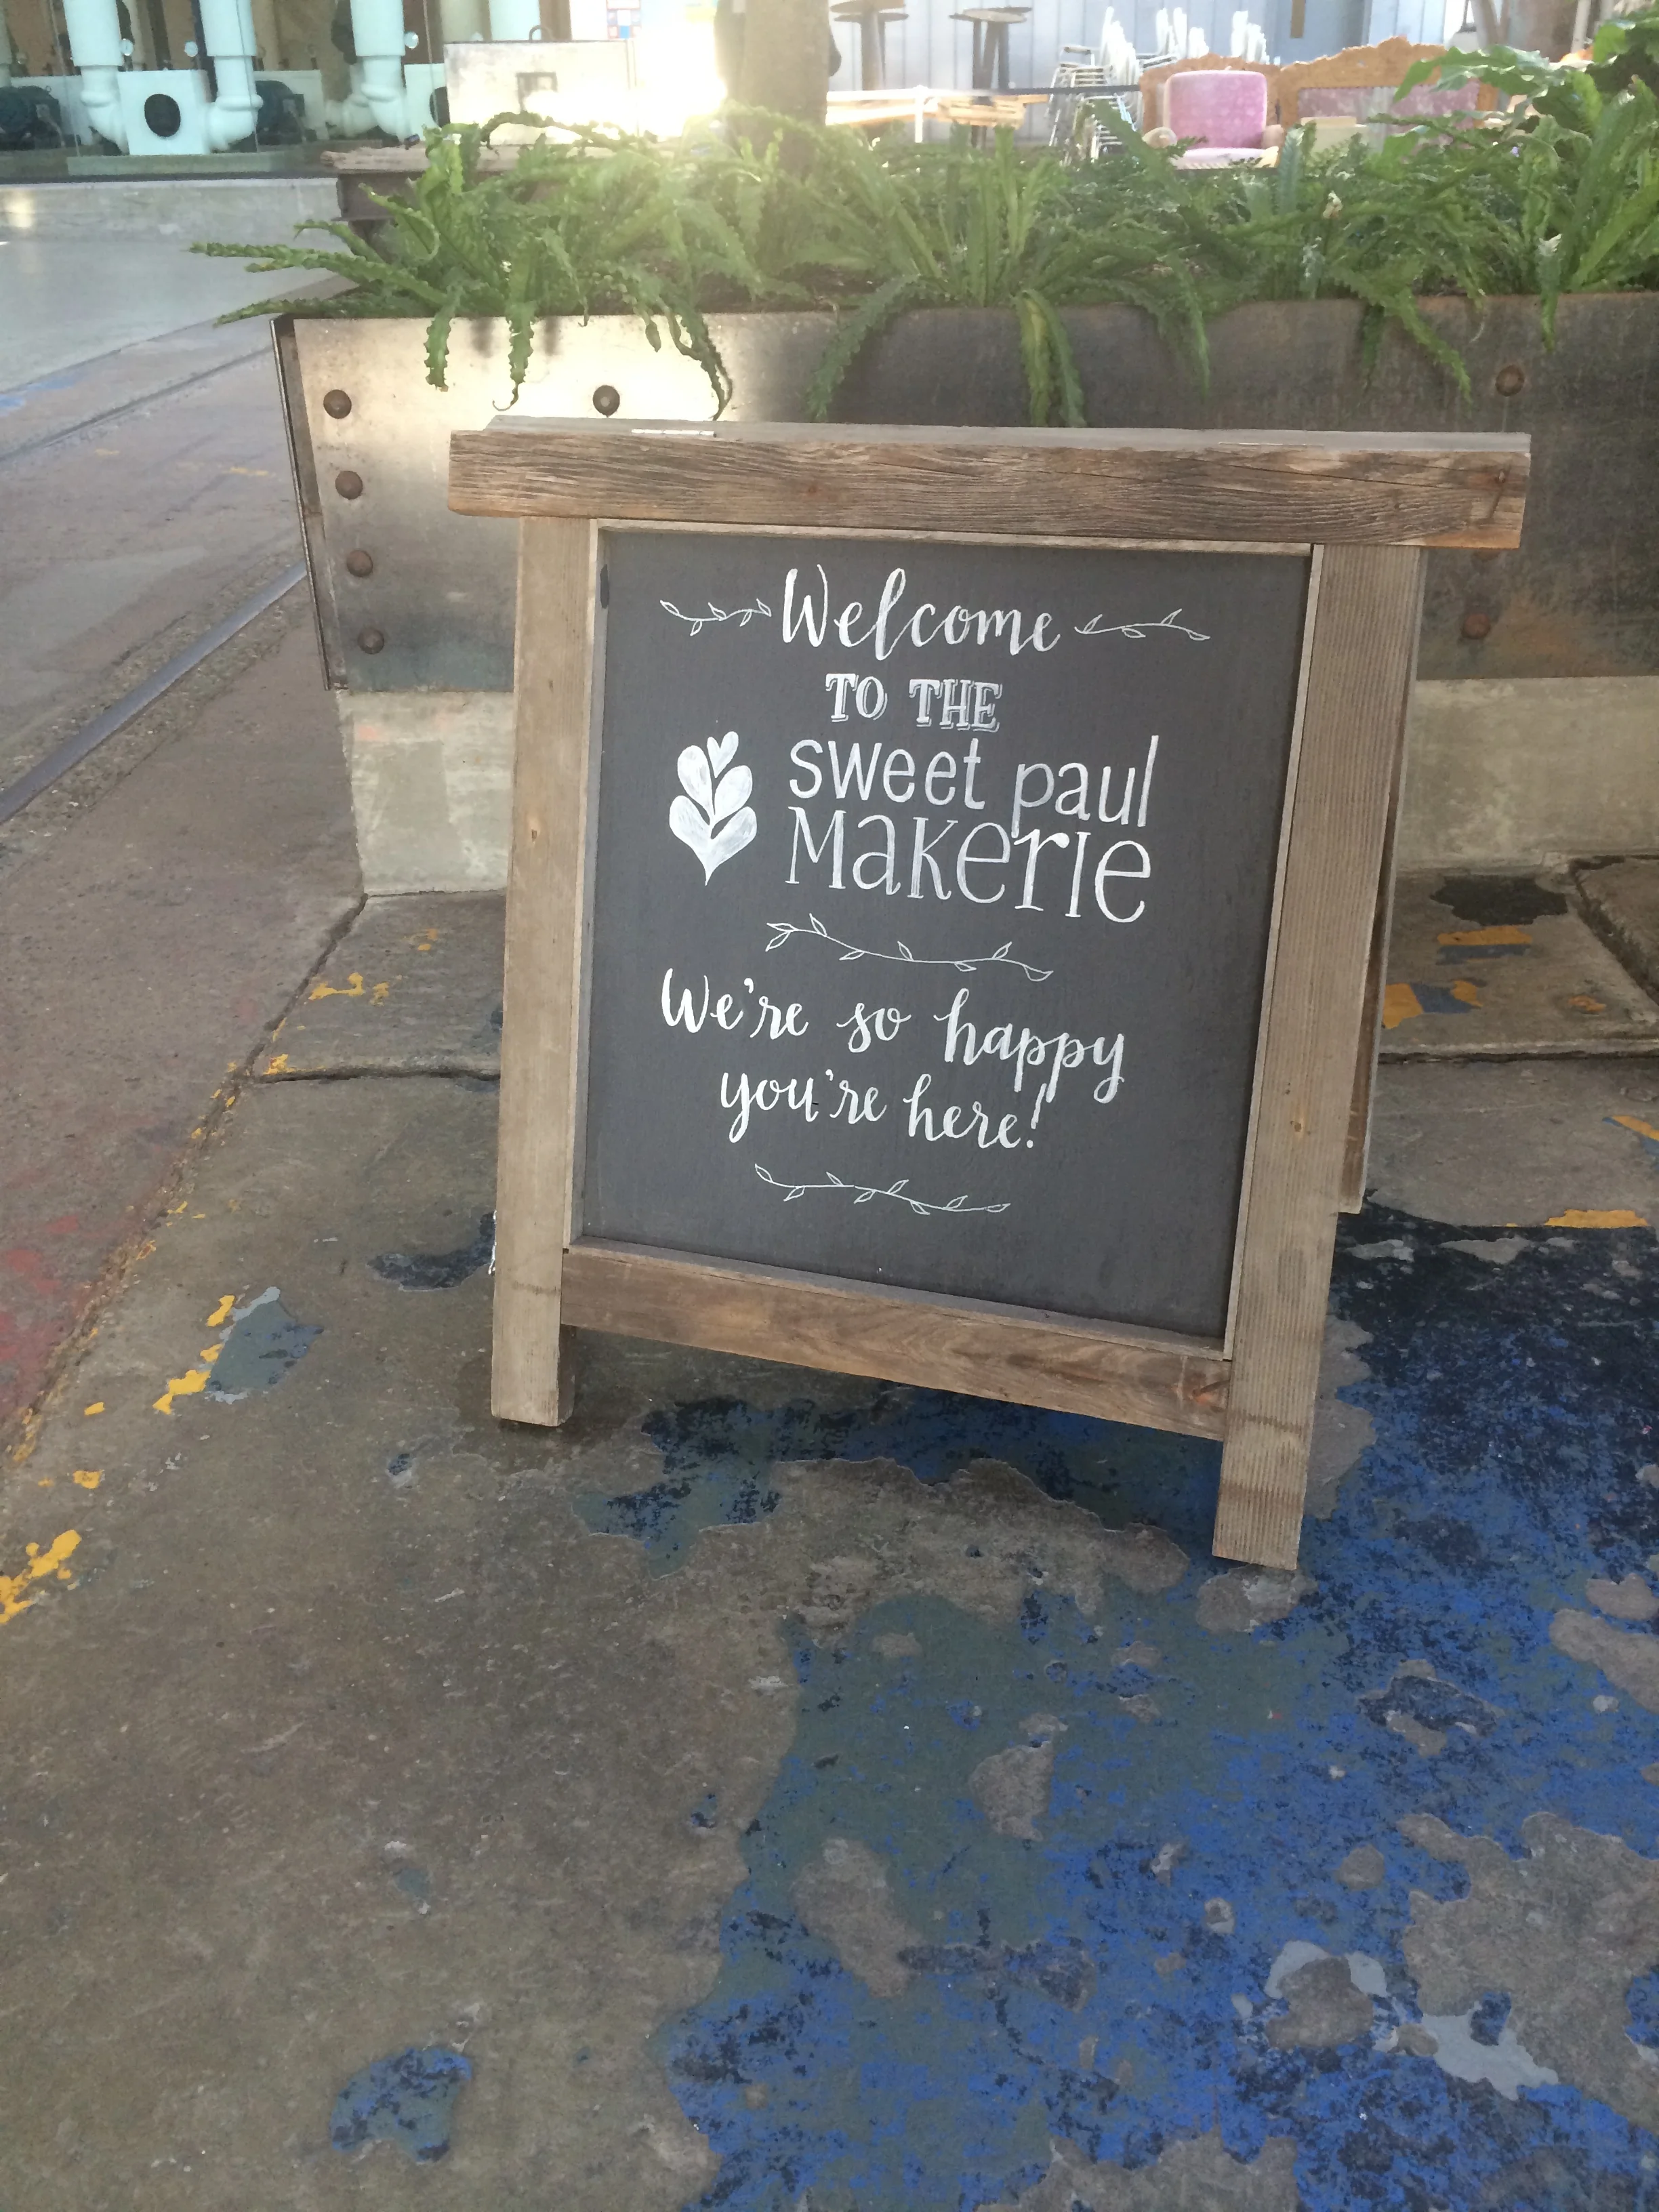 Welcome
TO THE
sweet paul
Makerie
We're so happy
you're here!